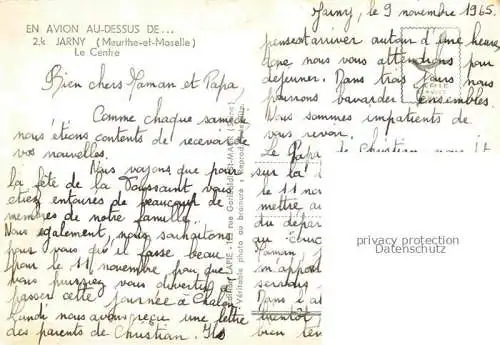 EN AVION AU-DESSUS DE...
2.- JARNY (Meurthe-et-Moselle)
Le Centre
Bien chers Maman et Papa,
Comme chaque samedi
nous étions contents de recevoir de
vos nouvelles.
Nous voyons que pour
la fête de la Toussaint vous
étiez entourés de beaucoup de
membres de notre famille.
Nous également, nous souhaitons
pour vous qu'il fasse beau
pour le 11 novembre pour que
vous puissiez vous divertir et
passer cette journée à
Lundi nous avons reçu une lettre
des parents de Christian. Ils
Jarny, le 9 novembre 1965
pensent arriver autour d'une heure,
donc nous vous attendrons pour
déjeuner. Dans trois jours nous
pourrons bavarder ensembles.
Nous sommes impatients de
vous revoir.
Le Papa de Christian
sur la
le 11 no
mettre au
du dépar
au
Maman
m'appor
serais
Dans l'at
bientôt
bien ten
LAPIE
Véritable photo au bromure
privacy protection
Datenschutz